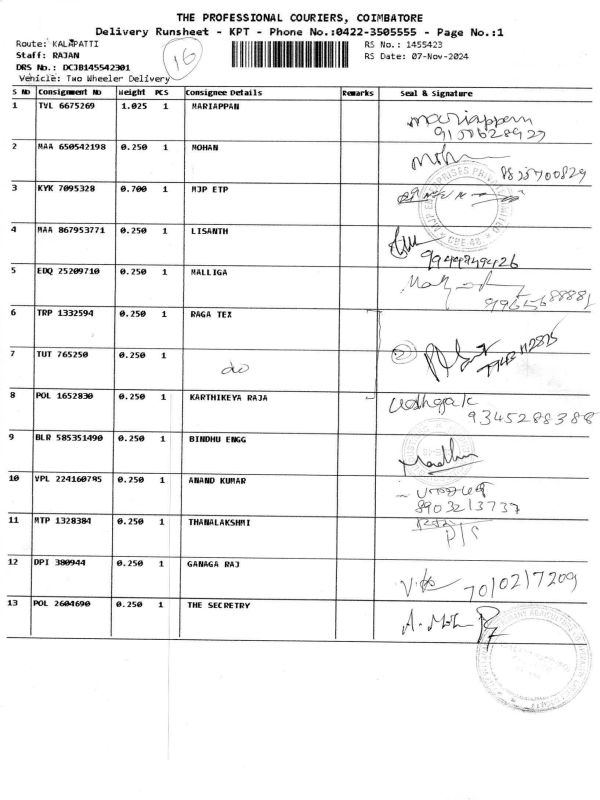 THE PROFESSIONAL COURIERS, COIMBATORE
Delivery Runsheet - KPT - Phone No.:0422-3505555 - Page No.:1
Route: KALAPATTI
RS No.: 1455423
Staff: RAJAN
RS Date: 07-Nov-2024
DRS No.: DCJB145542301
16
Vehicle: Two Wheeler Delivery
S No Consignment No Weight PCS Consignee Details Remarks Seal & Signature
1 TVL 6675269 1.025 1 MARIAPPAN mariappan
2 MAA 650542198 0.250 1 MOHAN
3 KYK 7095328 0.700 1 MJP ETP
4 MAA 867953771 0.250 1 LISANTH
5 EDQ 25209710 0.250 1 MALLIGA
6 TRP 1332594 0.250 1 RAGA TEX
7 TUT 765250 0.250 1 do
8 POL 1652830 0.250 1 KARTHIKEYA RAJA
9345288388
9 BLR 585351490 0.250 1 BINDHU ENGG
10 VPL 224160795 0.250 1 ANAND KUMAR
8903213737
11 MTP 1328384 0.250 1 THANALAKSHMI
12 DPI 380944 0.250 1 GANAGA RAJ
7010217209
13 POL 2604690 0.250 1 THE SECRETRY